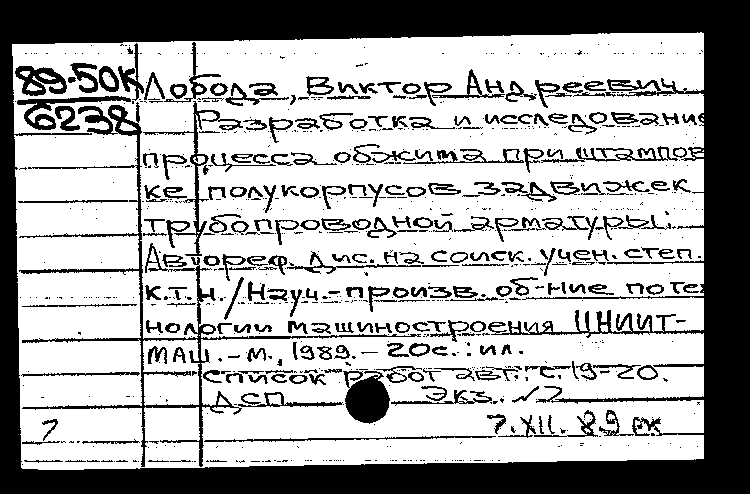 89-50К Лобода, Виктор Андреевич.
6238 Разработка и исследование
процесса обжима при штампов
ке полукорпусов задвижек
трубопроводной арматуры:
Автореф. дис. на соиск. учен. степ.
к.т.н. / Науч.-произв. об-ние по тех
нологии машиностроения ЦНИИТ-
МАШ. - М., 1989. - 20с.: ил.
Список работ авт.: с. 19-20.
ДСП Экз. √2
7 7.XII.89